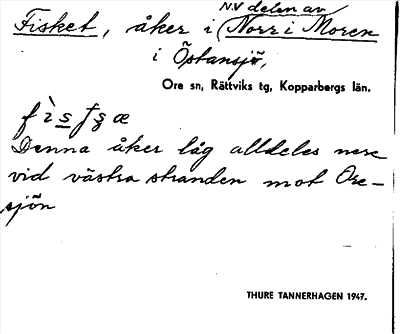 NV delen av
Fisket, åker i Norr i Moren
i Östansjö,
Ore sn, Rättviks tg, Kopparbergs län.
Denna åker låg alldeles nere
vid västra stranden mot Ore-
sjön
THURE TANNERHAGEN 1947.